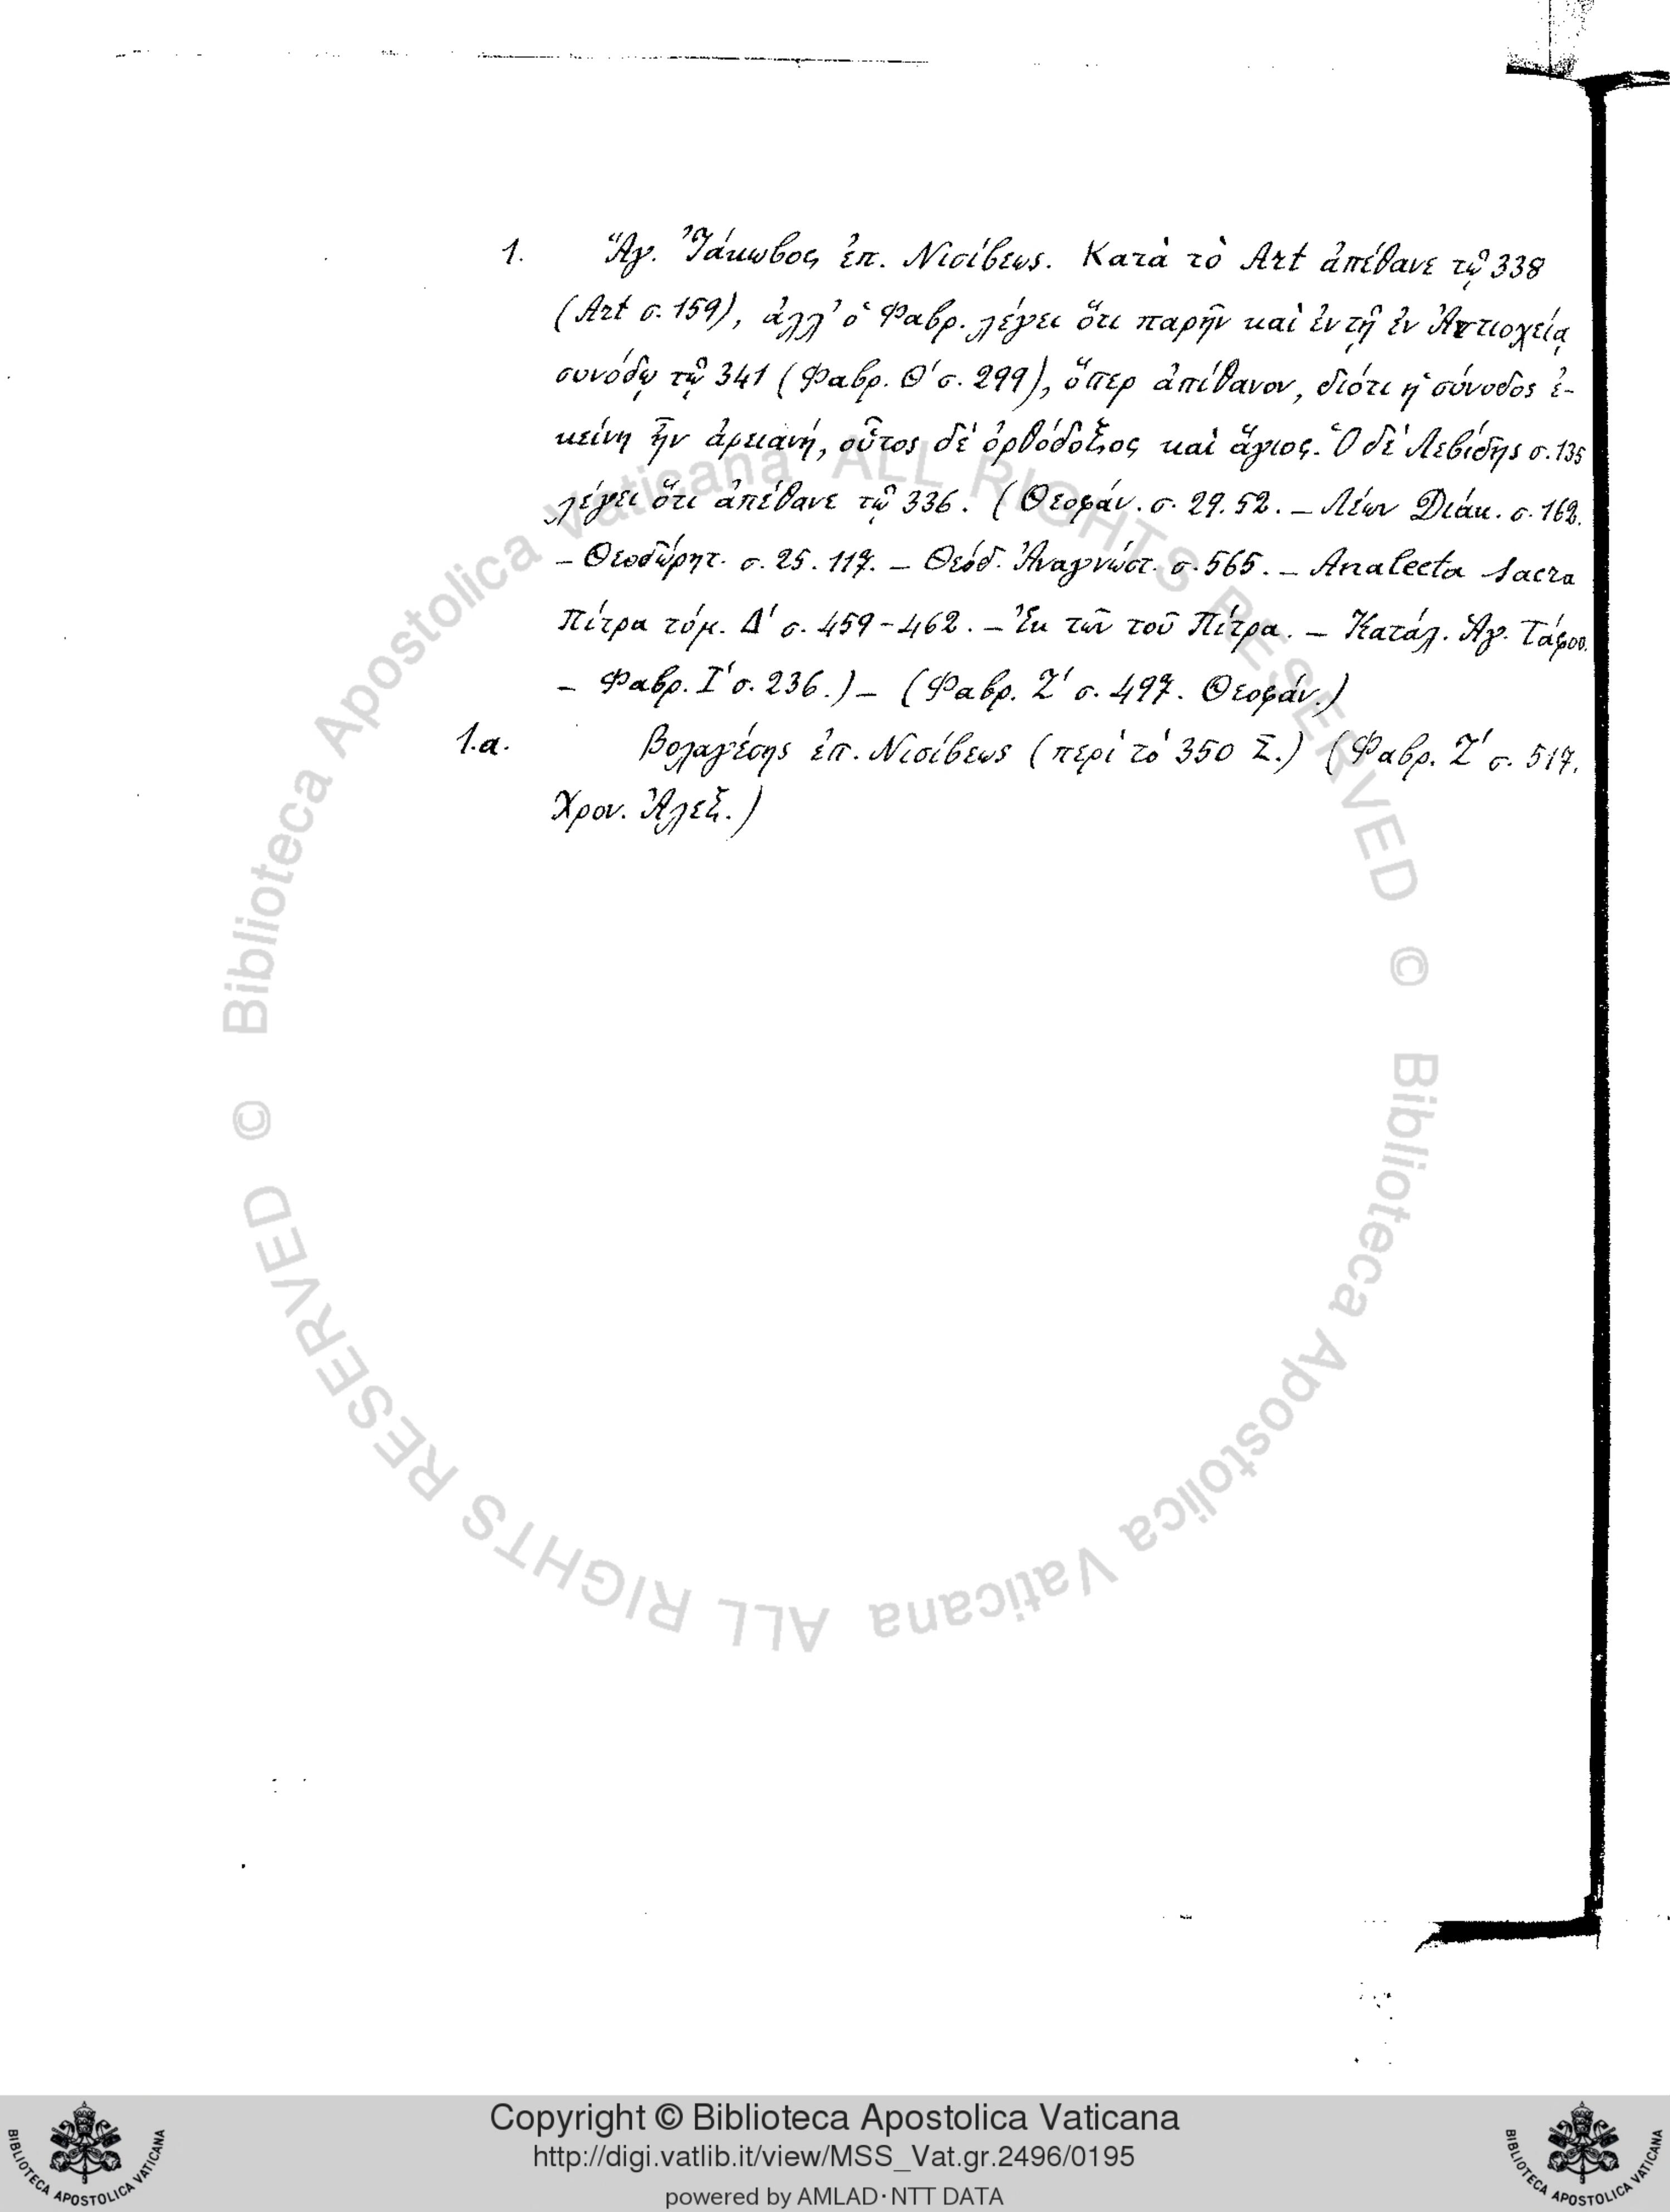 1. Ἅγ. Ἰάκωβος ἐπ. Νισίβεως. Κατὰ τὸ Art ἀπέθανε τῷ 338
(Art σ. 159), ἀλλ' ὁ Φαβρ. λέγει ὅτι παρῆν καὶ ἐν τῇ ἐν Ἀντιοχείᾳ
συνόδῳ τῷ 341 (Φαβρ. Θ' σ. 299), ὅπερ ἀπίθανον, διότι ἡ σύνοδος ἐ-
κείνη ἦν ἀρειανή, οὗτος δὲ ὀρθόδοξος καὶ ἅγιος. Ὁ δὲ Λεβίδης σ. 135
λέγει ὅτι ἀπέθανε τῷ 336. (Θεοφάν. σ. 29. 52. – Λέων Διάκ. σ. 162.
– Θεοδώρητ. σ. 25. 117. – Θεόδ. Ἀναγνώστ. σ. 565. – Analecta Sacra
Πίτρα τόμ. Δ' σ. 459-462. – Ἐκ τῶν τοῦ Πίτρα. – Κατάλ. Ἁγ. Τάφου.
– Φαβρ. Ι' σ. 236.) – (Φαβρ. Ζ' σ. 497. Θεοφάν.)
1.α. Βολαγέσης ἐπ. Νισίβεως (περὶ τὸ 350 Σ.) (Φαβρ. Ζ' σ. 517.
Χρον. Ἀλεξ.)
© Biblioteca Apostolica Vaticana ALL RIGHTS RESERVED
© Biblioteca Apostolica Vaticana ALL RIGHTS RESERVED
BIBLIOTECA APOSTOLICA VATICANA
Copyright © Biblioteca Apostolica Vaticana
http://digi.vatlib.it/view/MSS_Vat.gr.2496/0195
powered by AMLAD·NTT DATA
BIBLIOTECA APOSTOLICA VATICANA